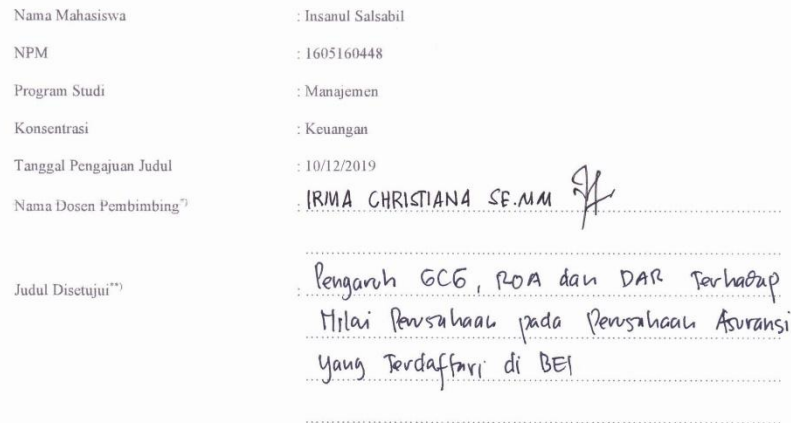 Nama Mahasiswa : Insanul Salsabil
NPM : 1605160448
Program Studi : Manajemen
Konsentrasi : Keuangan
Tanggal Pengajuan Judul : 10/12/2019
Nama Dosen Pembimbing*) : IRMA CHRISTIANA SE.MM
Judul Disetujui**) : Pengaruh GCG, ROA dan DAR Terhadap
Nilai Perusahaan pada Perusahaan Asuransi
yang Terdaftar di BEI